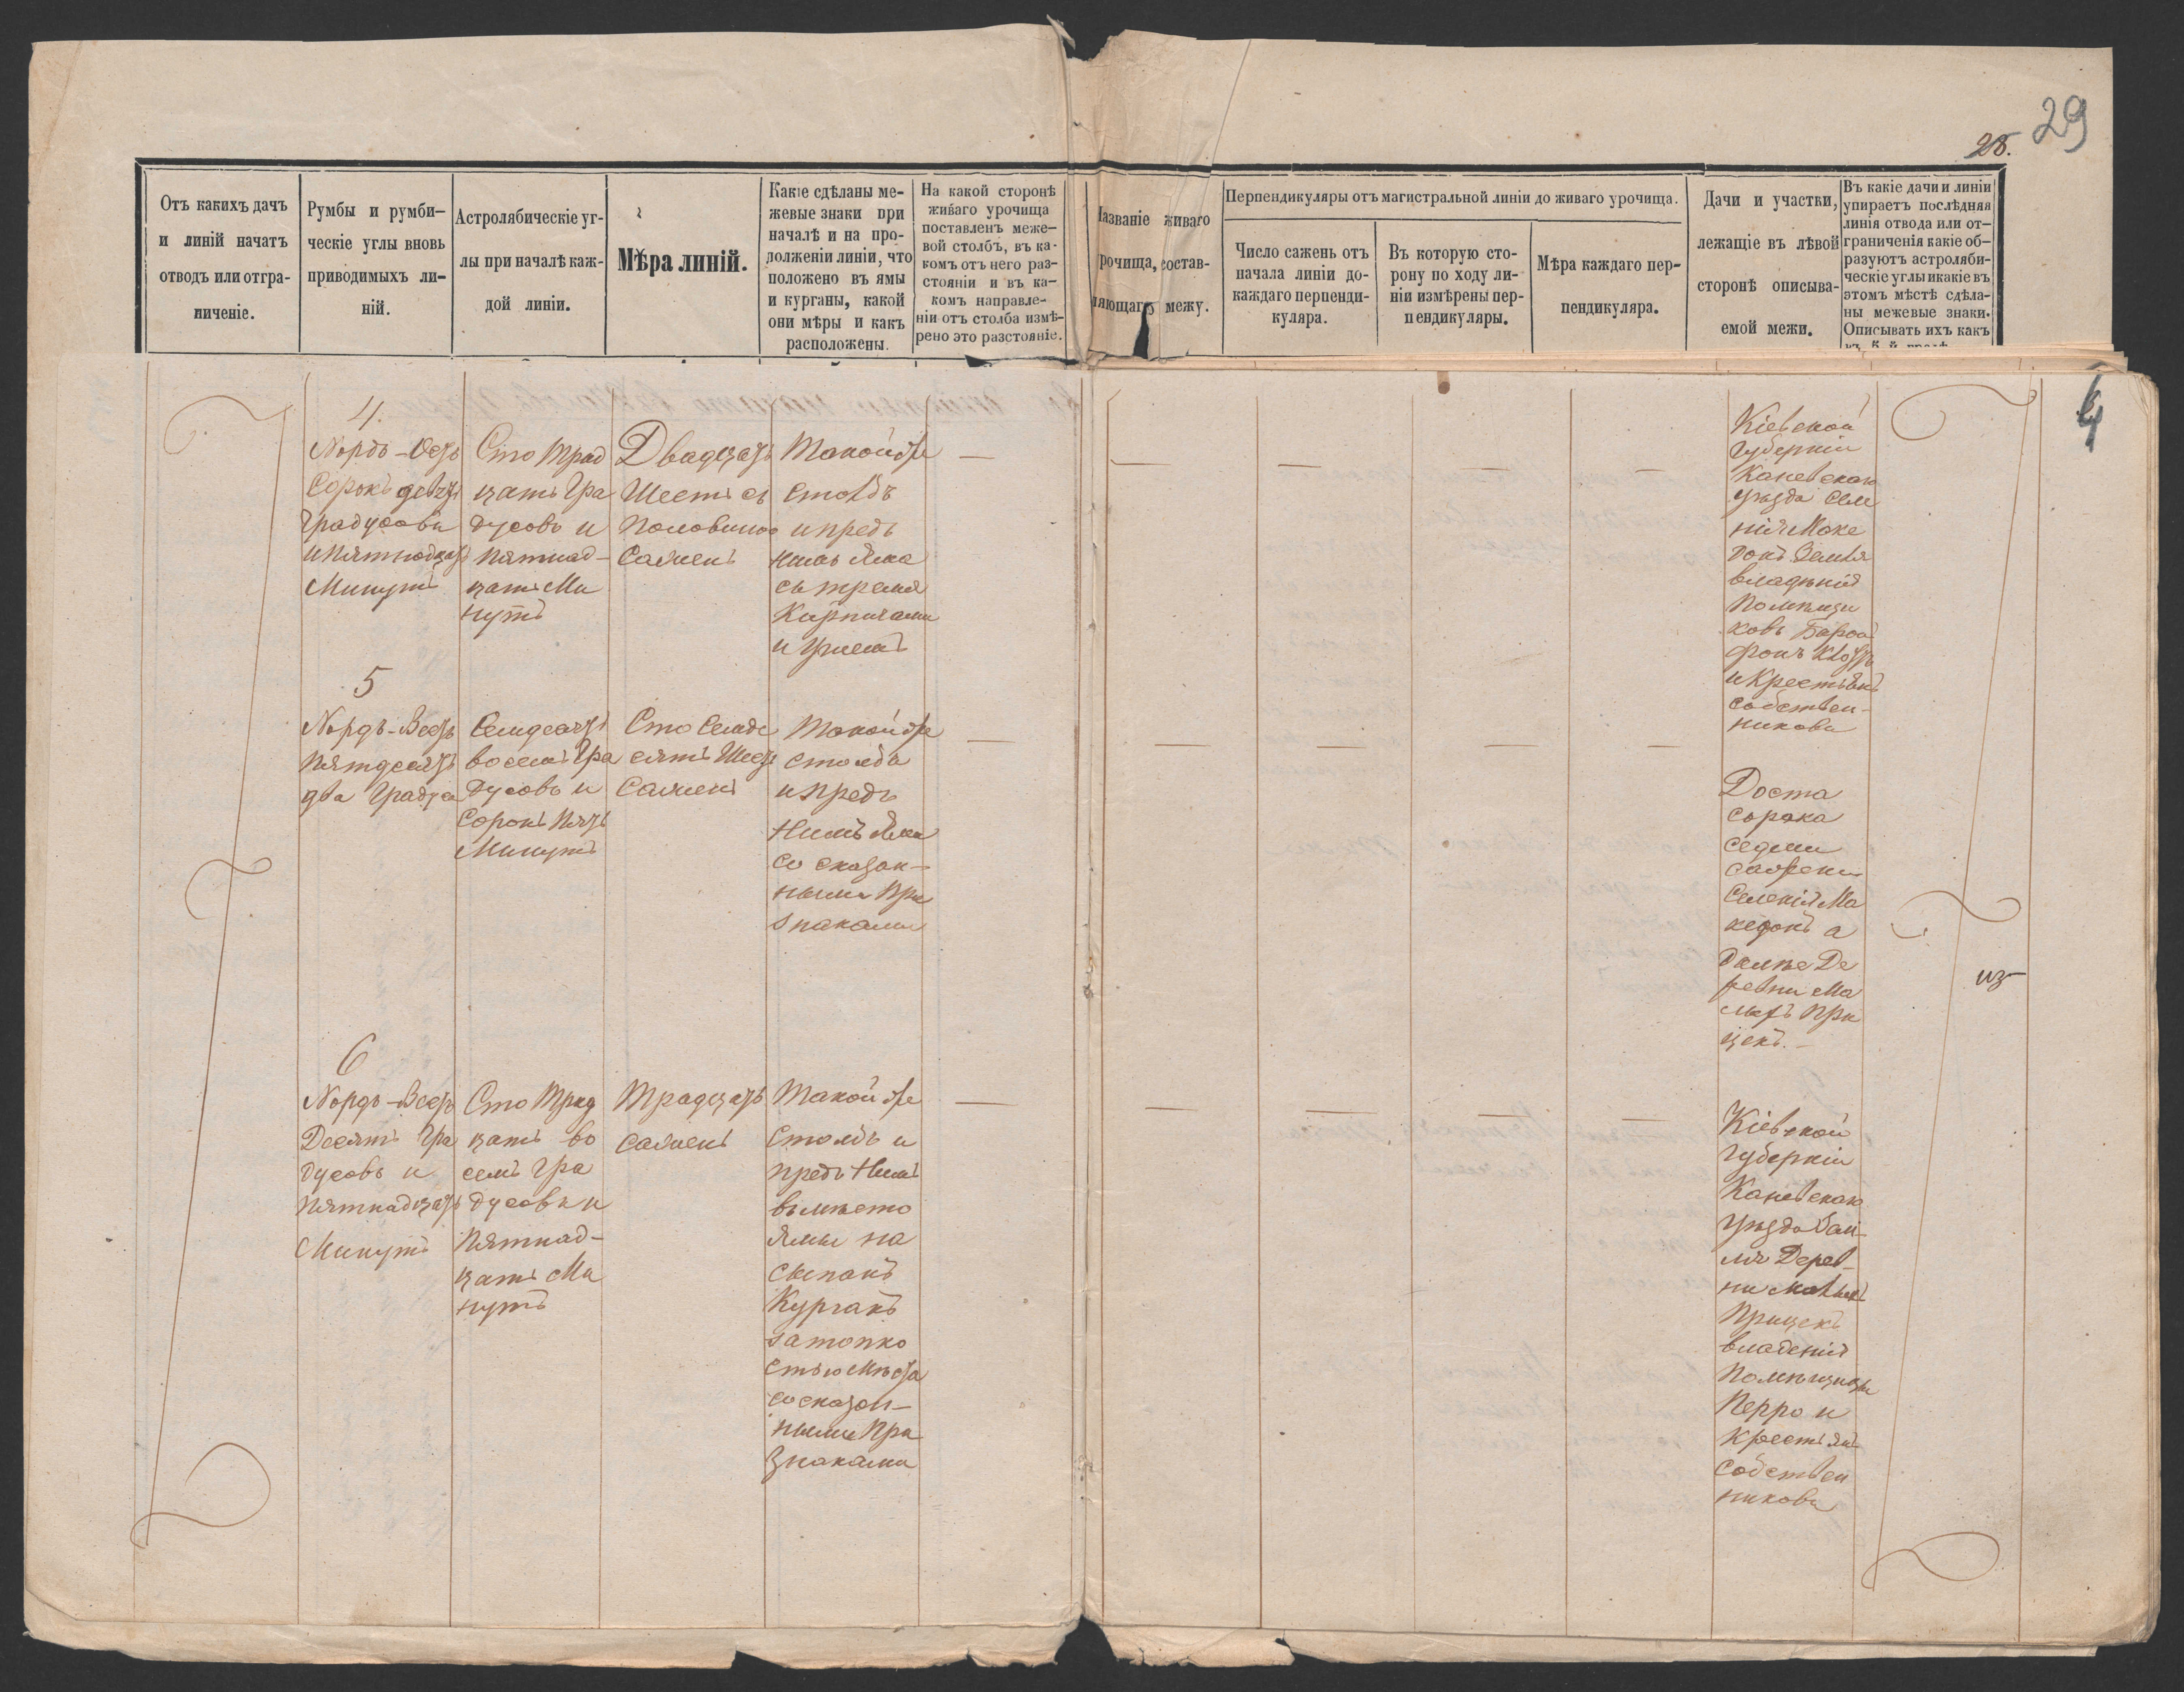 29
28.
Отъ какихъ дачъ
и линій начатъ
отводъ или отгра-
ниченіе.
Румбы и румби-
ческіе углы вновь
приводимыхъ ли-
ній.
Астролябическіе уг-
лы при началѣ каж-
дой линіи.
Мѣра линій.
Какіе сдѣланы ме-
жевые знаки при
началѣ и на про-
долженіи линіи, что
положено въ ямы
и курганы, какой
они мѣры и какъ
расположены.
На какой сторонѣ
живаго урочища
поставленъ меже-
вой столбъ, въ ка-
комъ отъ него раз-
стояніи и въ ка-
комъ направле-
ніи отъ столба измѣ-
рено это разстояніе.
Названіе живаго
урочища, состав-
ляющаго межу.
Перпендикуляры отъ магистральной линіи до живаго урочища.
Число сажень отъ
начала линіи до-
каждаго перпенди-
куляра.
Въ которую сто-
рону по ходу ли-
ніи измѣрены пер-
пендикуляры.
Мѣра каждаго пер-
пендикуляра.
Дачи и участки,
лежащіе въ лѣвой
сторонѣ описыва-
емой межи.
Въ какіе дачи и линіи
упираетъ послѣдняя
линія отвода или от-
граниченія какіе об-
разуютъ астроляби-
ческіе углы и какіе въ
этомъ мѣстѣ сдѣла-
ны межевые знаки.
Описывать ихъ какъ
въ 5 й графѣ
4
4.
Нордъ-Остъ
Сорокъ девять
Градусовъ
и пятнадцать
Минутъ
Сто Трид
цать Гра
дусовъ и
пятнад-
цать Ми
нутъ
Двадцать
Шесть съ
половиною
Сажень
Такой же
столбъ
и предъ
нимъ Яма
съ тремя
Кирпичами
и Углемъ
Кіевской
Губерніи
Каневскаго
уѣзда Селе
нія Маке
донъ Земля
владѣнія
Помѣщи
ковъ Барон
фонъ
и Крестьянъ
собствен-
никовъ
5
Нордъ-Вестъ
Пятдесятъ
два Градуса
Семдесятъ
восемь Гра
дусовъ и
Сорокъ Пять
Минутъ
Сто Семде
сятъ Шесть
Сажень
Такой же
столбъ
и предъ
Нимъ Яма
со сказан-
ными При
знаками
До ста
сорока
седьми
сажень
Селенія Ма
кедонъ а
далѣе Де
ревни Ма
лыхъ При
цекъ. -
из
6
Нордъ-Вестъ
Десять Гра
дусовъ и
Пятнадцать
Минутъ
Сто Трид
цать во
семь Гра
дусовъ и
Пятнад-
цать Ми
нутъ
Тридцать
сажень
Такой же
Столбъ и
предъ Нимъ
вмѣсто
Ямы на
сыпанъ
Курганъ
за топко
стью мѣста
со сказан-
ными При
знаками
Кіевской
Губерніи
Каневскаго
Уѣзда Зем-
ля Дерев-
ни Малыхъ
Прицекъ
владенія
Помѣщицы
Перро и
Крестьянъ
Собствен
никовъ